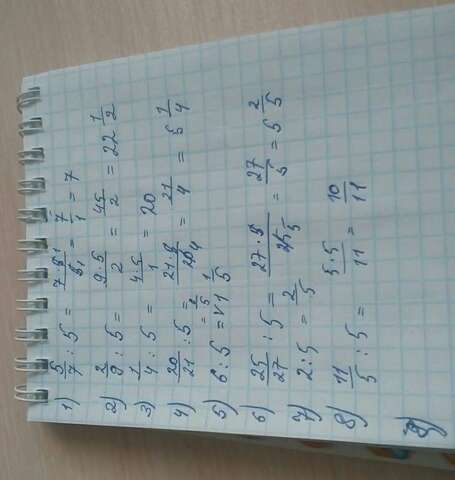 1) 5/7 : 5 = 7·5/5 = 7/1 = 7
2) 2/9 : 5 = 9·5/2 = 45/2 = 22 1/2
3) 1/4 : 5 = 4·5/1 = 20
4) 20/21 : 5 = 21·5/20 4 = 21/4 = 5 1/4
5) 6 : 5 = 1 1/5
6) 25/27 : 5 = 27·5/25 5 = 27/5 = 5 2/5
7) 2 : 5 = 2/5
8) 11/5 : 5 = 5·5/11 = 10/11